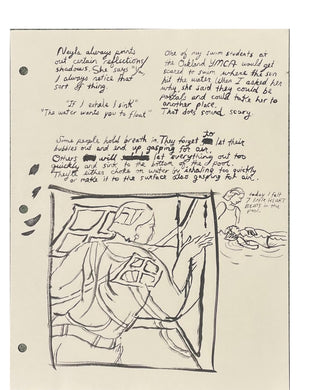 Nayla always points
out certain reflections/
shadows. She says "Ya,
I always notice that
sort of thing.
"If I exhale I sink"
"The water wants you to float"
One of my swim students at
the Oakland YMCA would get
scared to swim where the sun
hit the water. When I asked her
why, she said they could be
portals and could take her to
another place.
That does sound scary.
Some people hold breath in. They forget to let their
bubbles out and end up gasping for air.
Others will let everything out too
quickly and sink to the bottom of the pool.
They'll either choke on water by inhaling too quickly
or make it to the surface also gasping for air.
today I felt
7 little HEART
BEATS in the
pool.